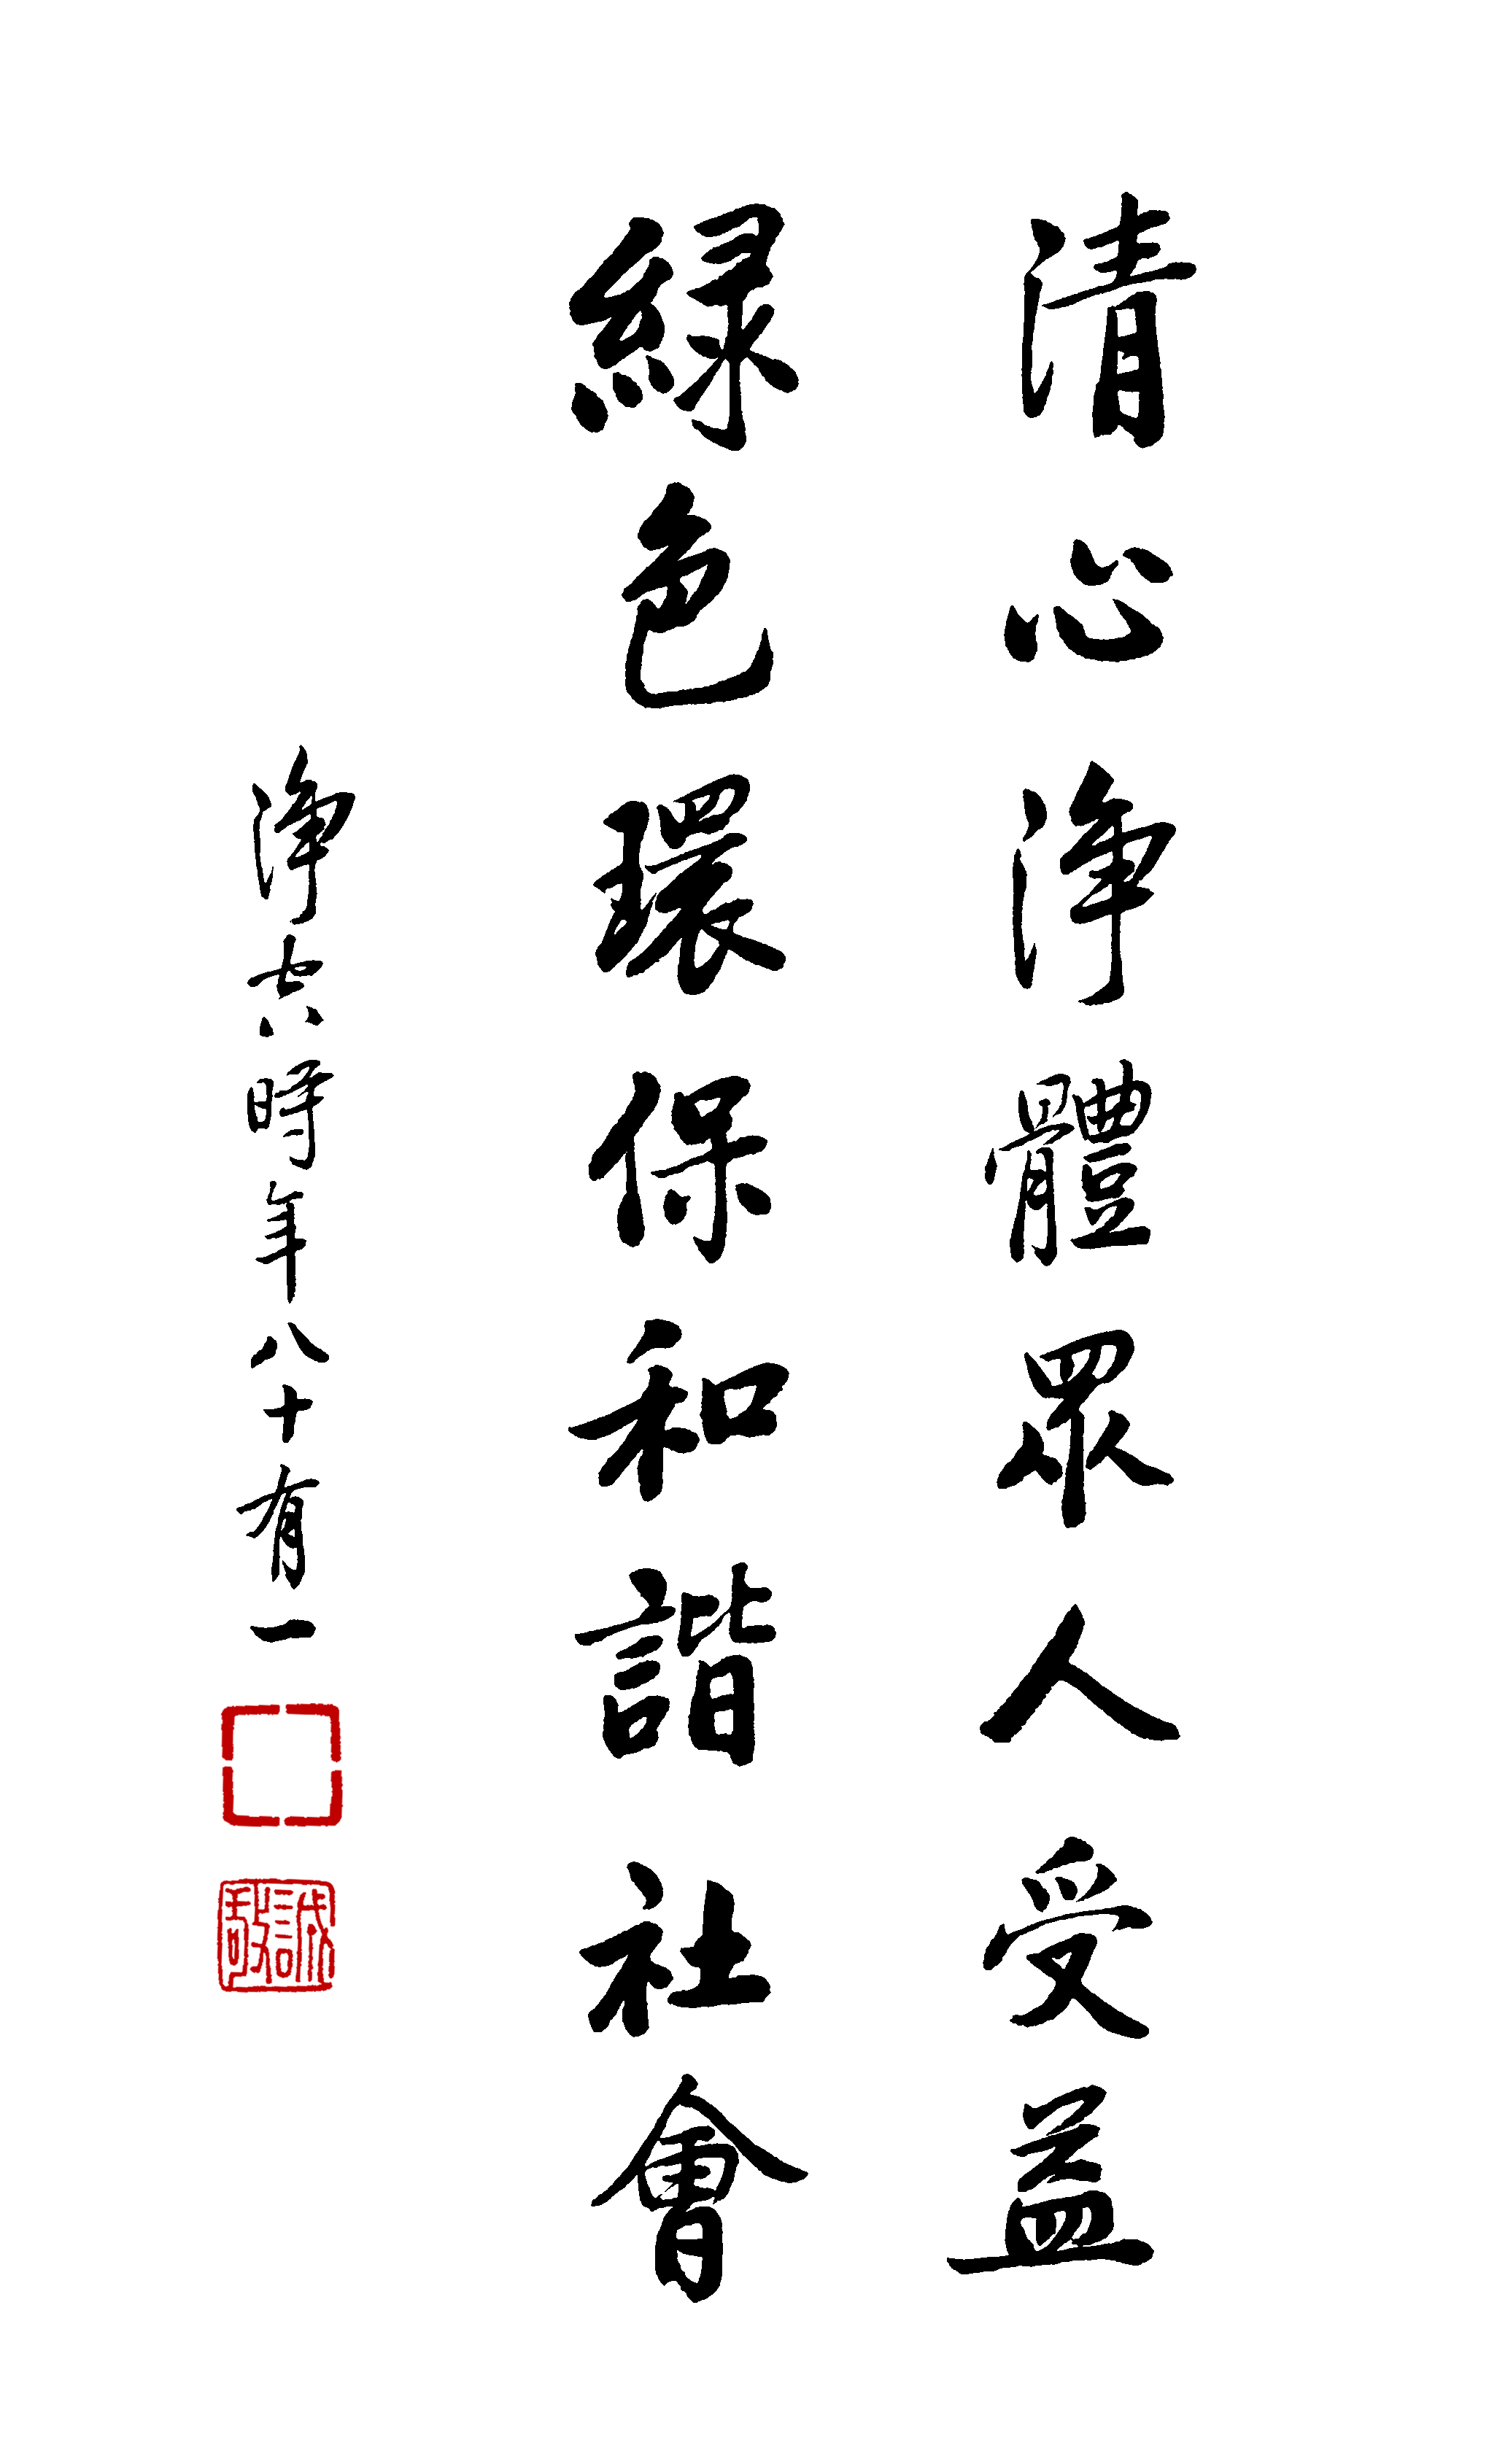 清心淨體眾人受益
綠色環保和諧社會
淨空時年八十有一
誠敬